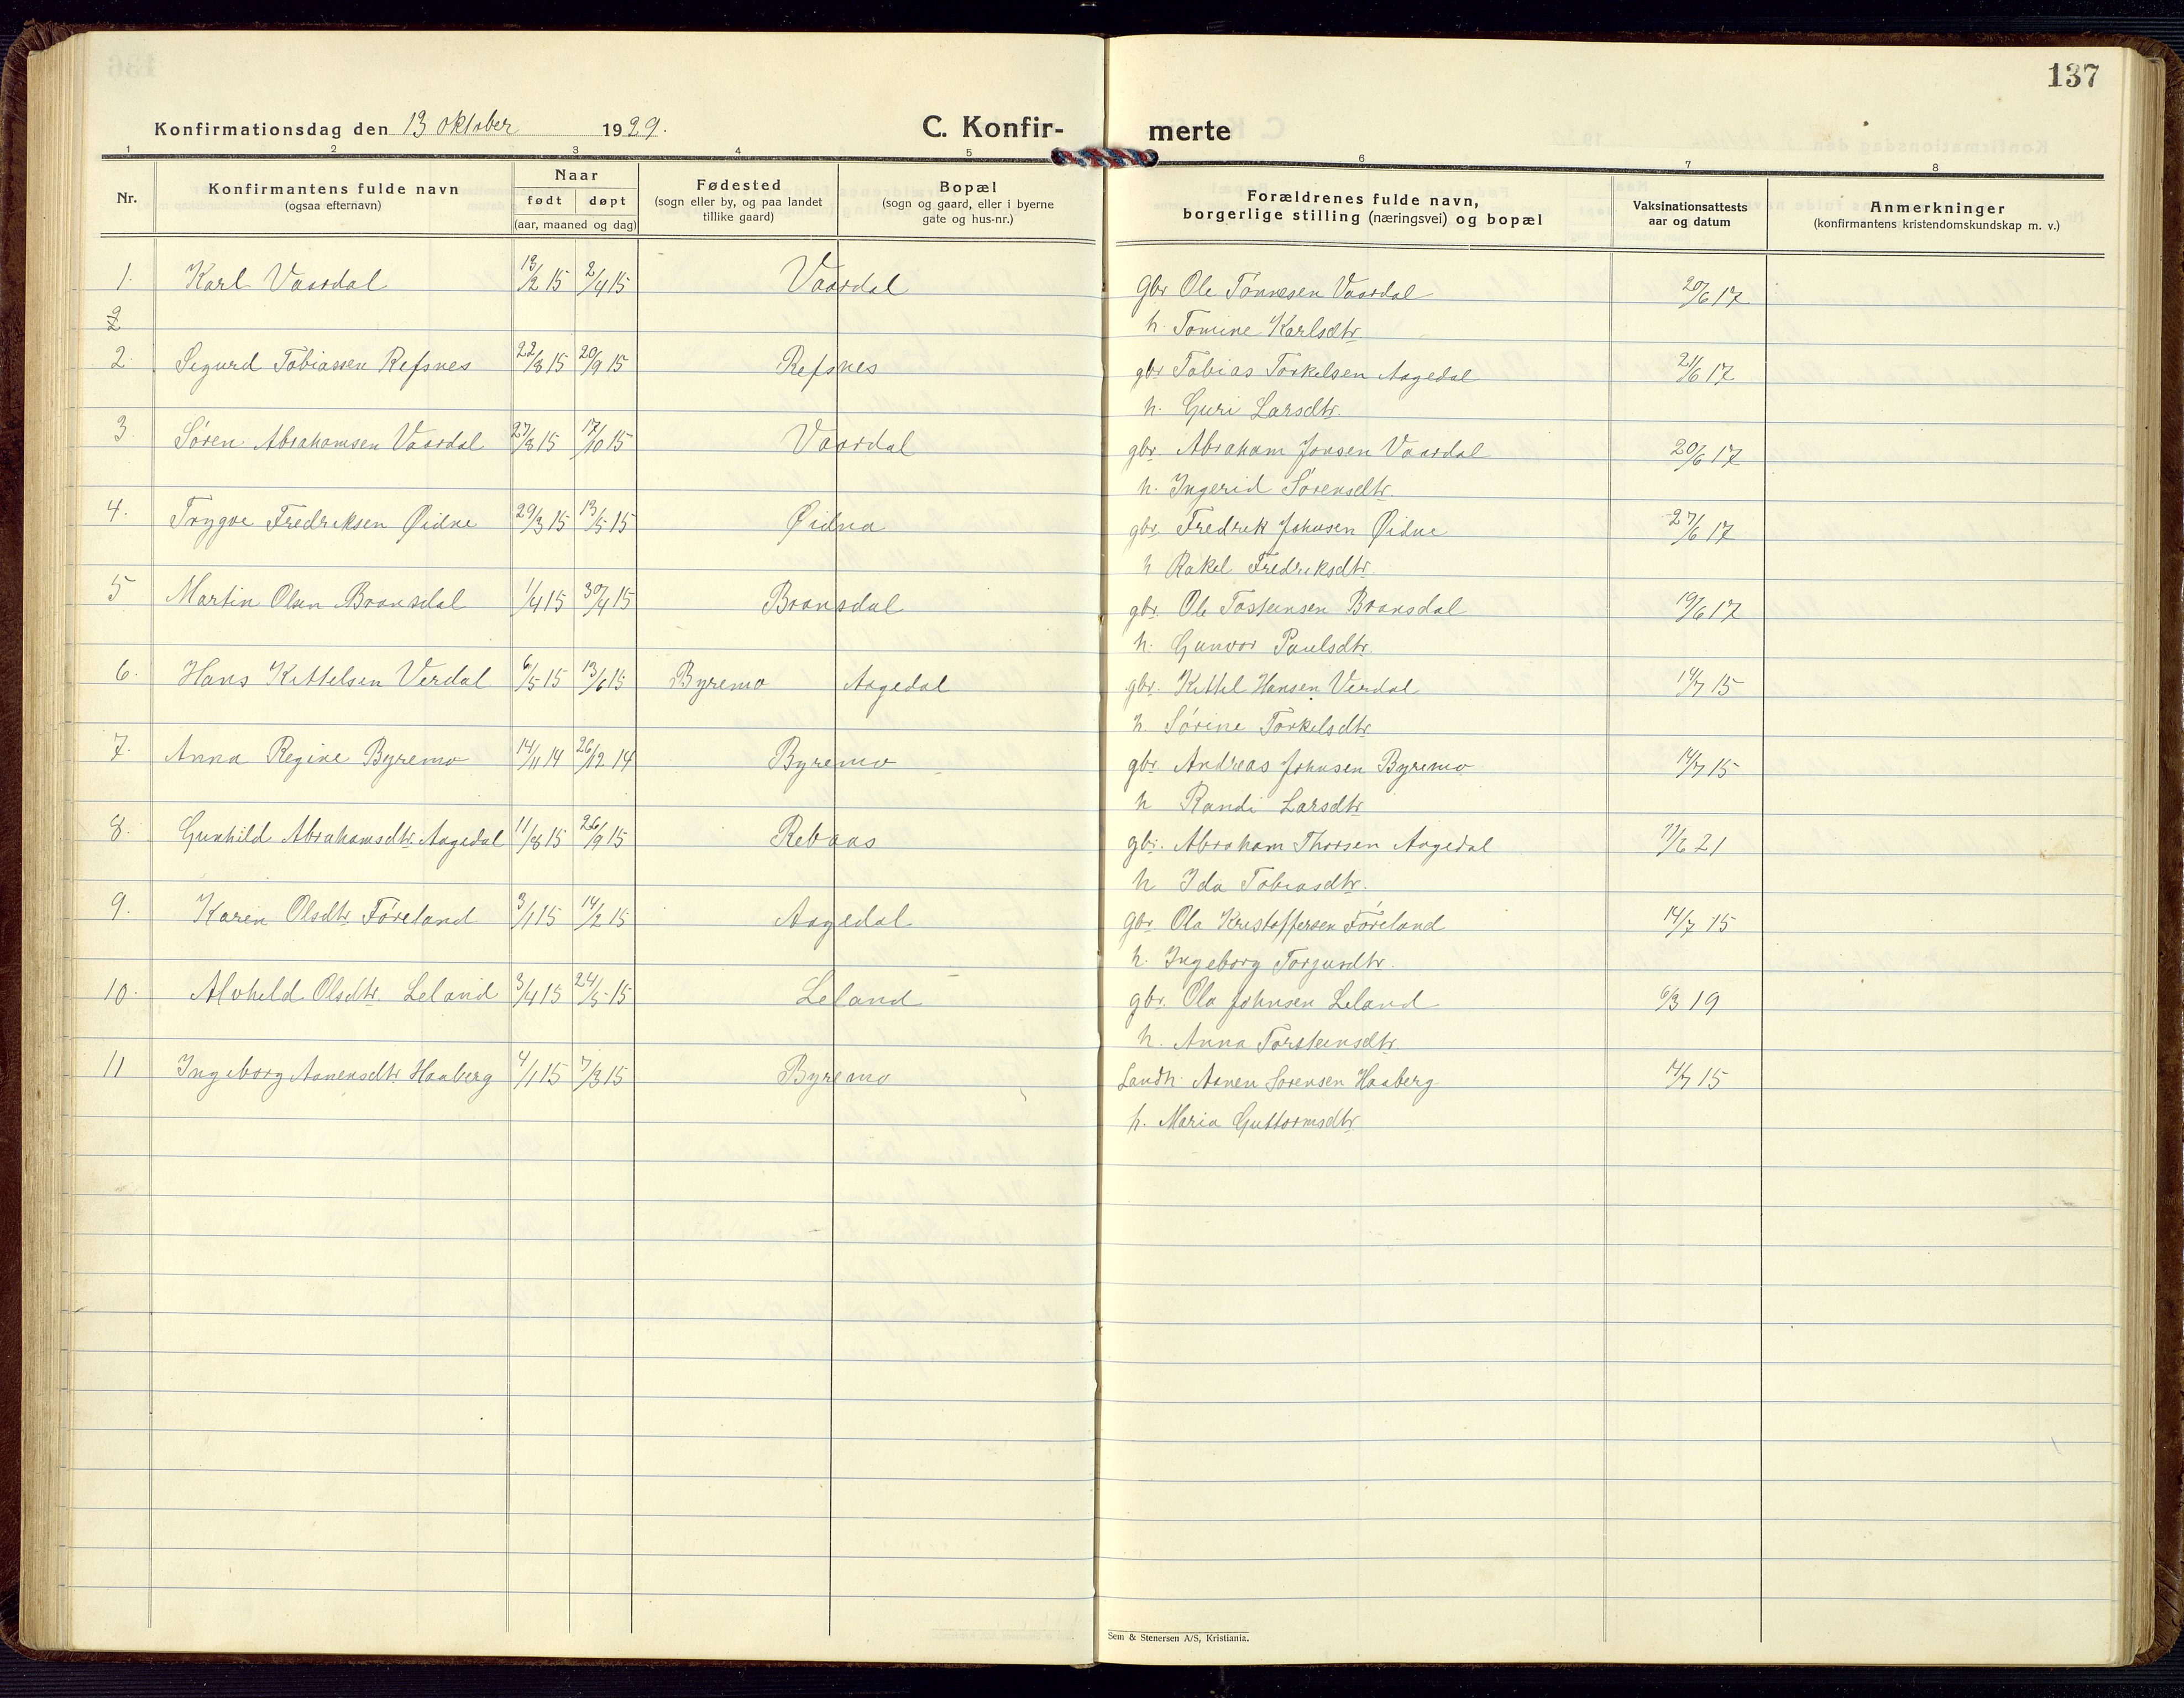 137
Konfirmationsdag den 13 oktober 1929.
C. Konfir- merte
1 2 3 4 5 6 7 8
Nr.
Konfirmantens fulde navn
(ogsaa efternavn)
Naar
født døpt
(aar, maaned og dag)
Fødested
(sogn eller by, og paa landet
tillike gaard)
Bopæl
(sogn og gaard, eller i byerne
gate og hus-nr.)
Forældrenes fulde navn,
borgerlige stilling (næringsvei) og bopæl
Vaksinationsattests
aar og datum
Anmerkninger
(konfirmantens kristendomskundskap m. v.)
1. Karl Vaardal 13/2 15 2/4 15 Vaardal gbr Ole Tønnesen Vaardal 20/6 17
2
h. Tomine Karlsdtr.
2. Sigurd Tobiassen Refsnes 22/8 15 20/9 15 Refsnes gbr Tobias Torkelsen Aagedal 21/6 17
h. Guri Larsdtr.
3. Søren Abrahamsen Vaardal 27/8 15 17/10 15 Vaardal gbr. Abraham Jonsen Vaardal 20/6 17
h. Ingerid Sørensdtr.
4. Trygve Fredriksen Øidne 29/3 15 13/5 15 Øidna gbr. Fredrik Johnsen Øidne 27/6 17
h Rakel Fredriksdtr.
5 Martin Olsen Bransdal 1/4 15 30/4 15 Bransdal gbr. Ole Tosteinsen Bransdal 19/6 17
h. Gunvor Paulsdtr.
6. Hans Kittelsen Verdal 6/5 15 13/6 15 Byremo Aagedal gbr. Kittil Hansen Verdal 14/7 15
h. Sørine Torkelsdtr.
7. Anna Regine Byremo 14/11 14 26/12 14 Byremo gbr. Andreas Johnsen Byremo 14/7 15
h Randi Larsdtr.
8. Gunhild Abrahamsdtr. Aagedal 11/8 15 26/9 15 Rebaas gbr. Abraham Thorsen Aagedal 7/6 21
h Ida Tobiasdtr.
9. Karen Olsdtr. Føreland 3/1 15 14/2 15 Aagedal gbr Ola Kristoffersen Føreland 14/7 15
h. Ingeborg Torjusdtr.
10. Alvhild Olsdtr. Leland 3/4 15 24/5 15 Leland gbr. Ola Johnsen Leland 6/3 19
h. Anna Torsteinsdtr.
11 Ingeborg Aanensdtr. Haaberg 4/1 15 7/3 15 Byremo Landh. Aanen Sørensen Haaberg 14/7 15
h. Maria Guttormsdtr.
Sem & Stenersen A/S, Kristiania.